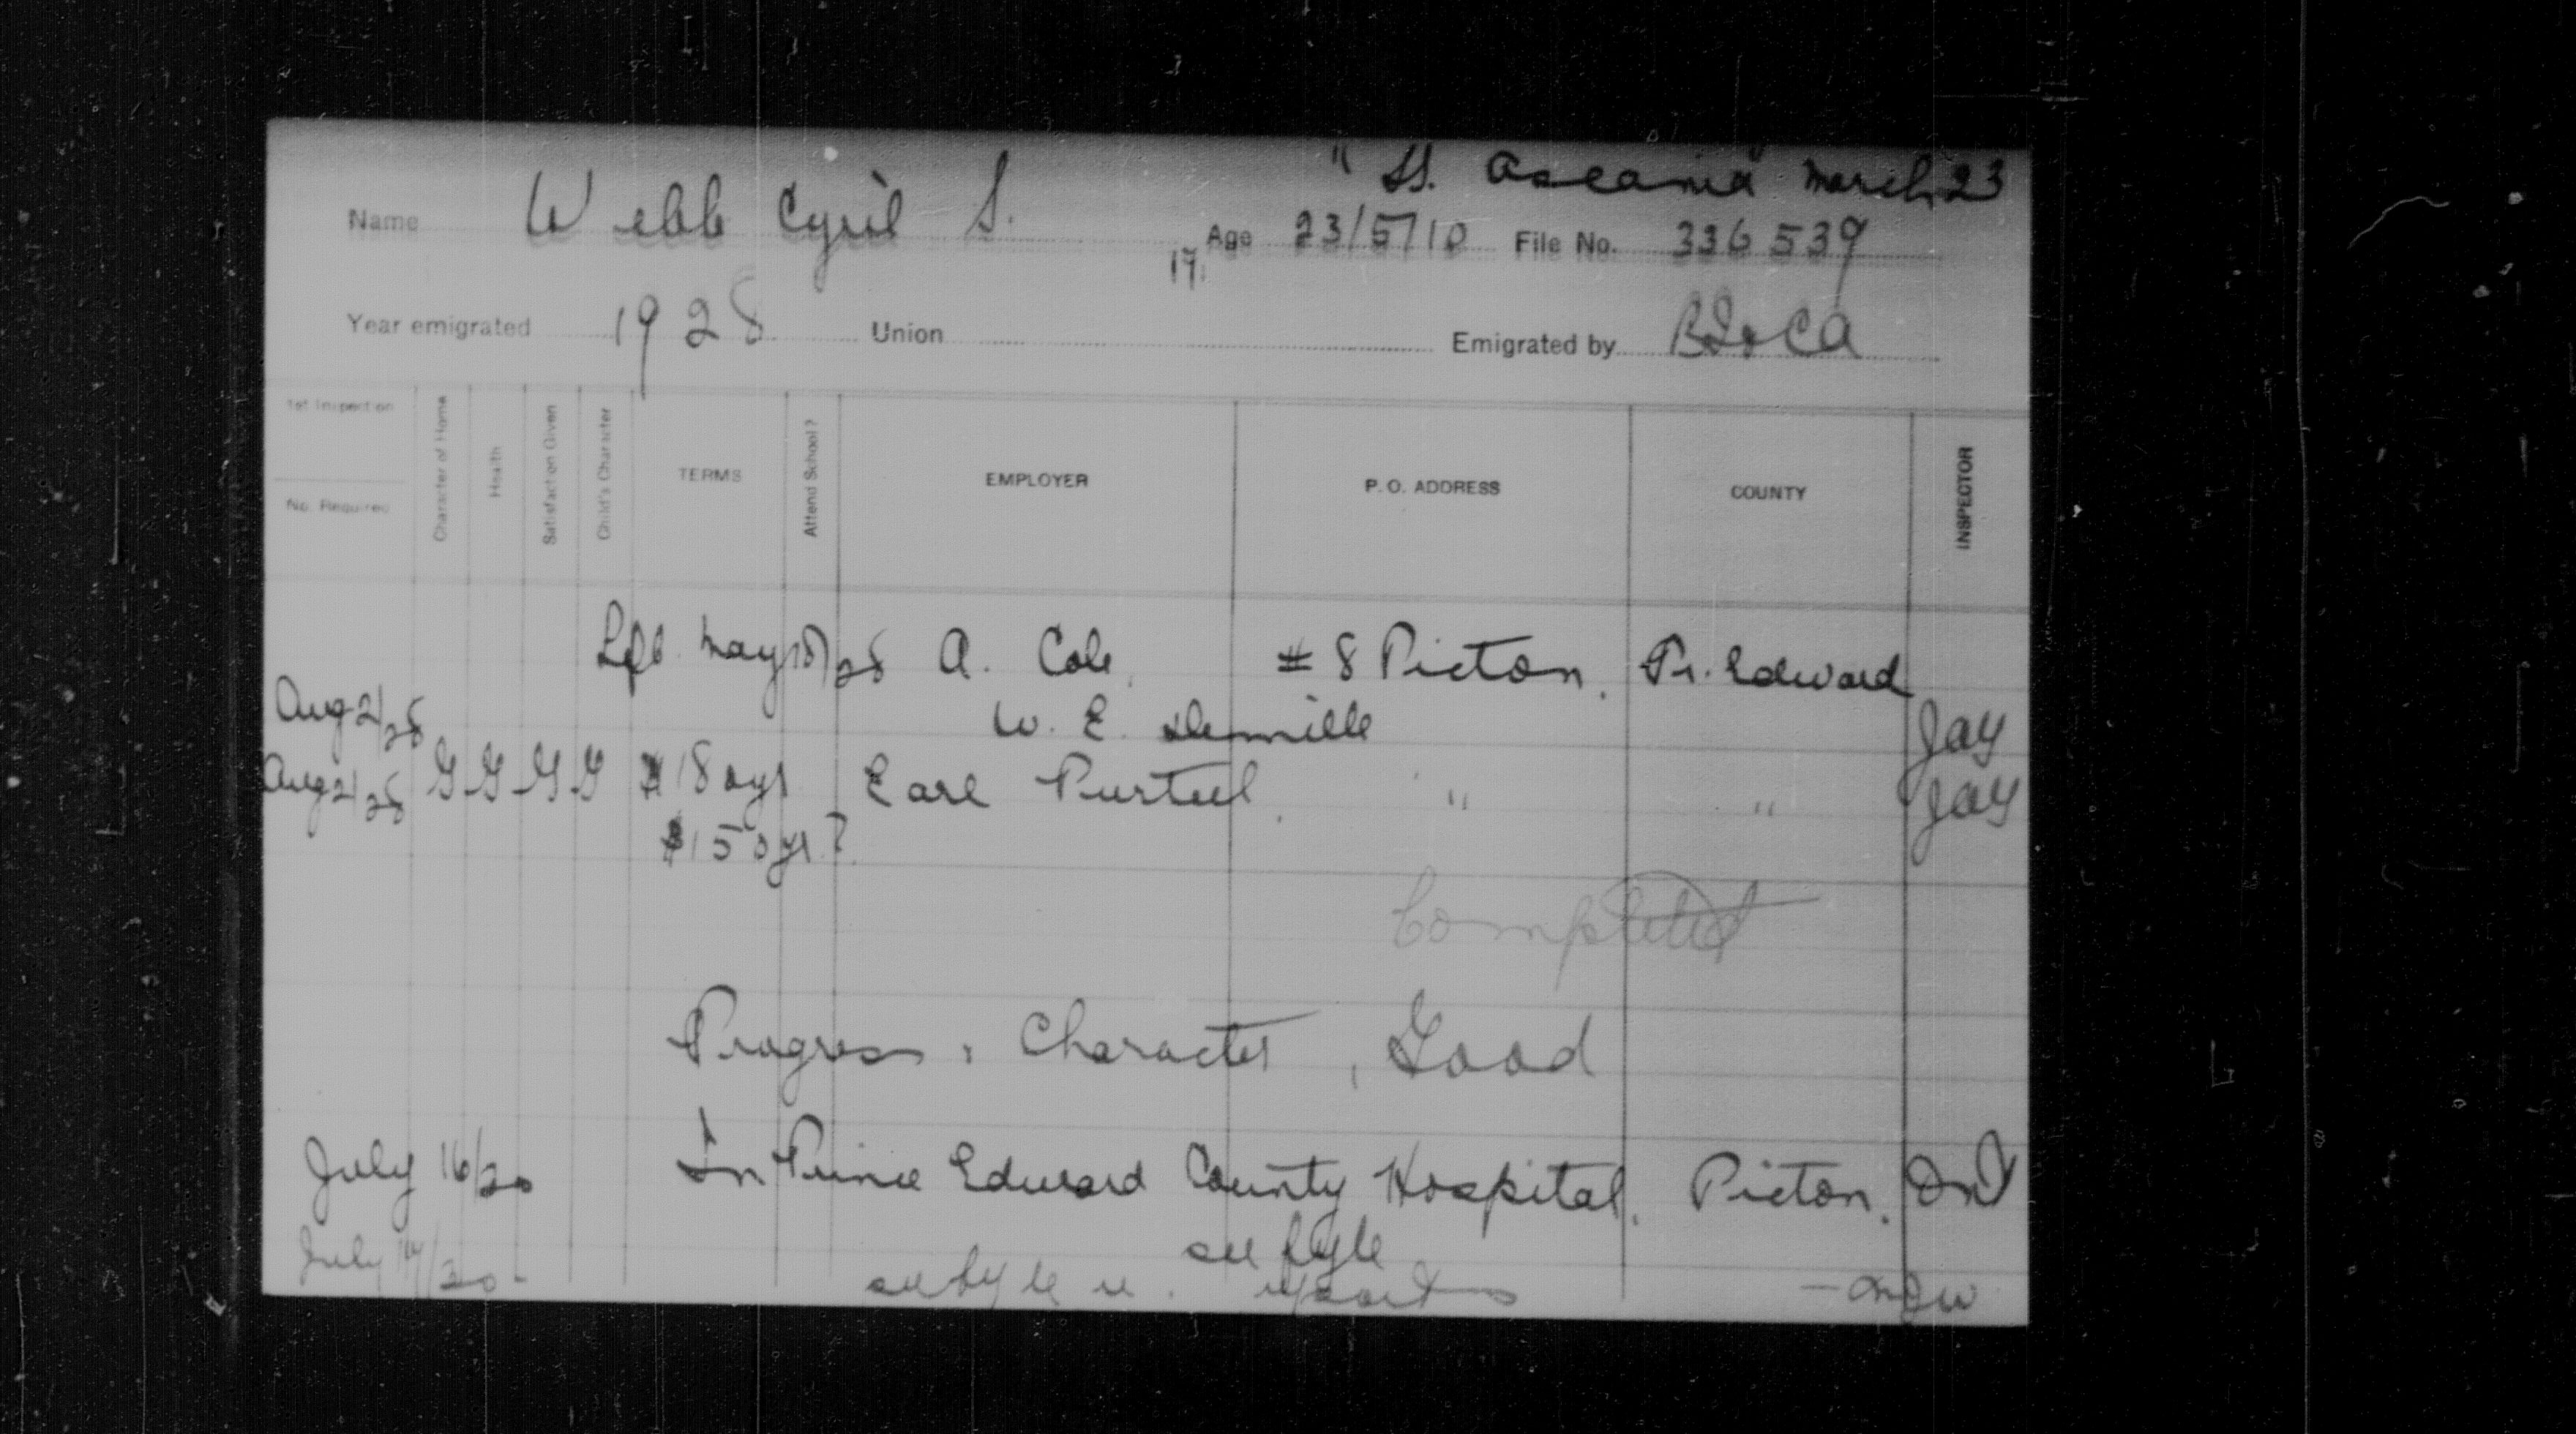 "SS. Ascania" March 23
Name Webb Cyril S. Age 23/5/10 File No. 336539
17.
Year emigrated 1928 Union Emigrated by
1st Inspection
No. Required
Character of Home
Health
Satisfaction Given
Child's Character
TERMS
Attend School?
EMPLOYER
P. O. ADDRESS
COUNTY
INSPECTOR
Left May 28 A. Cole # 8 Picton. Pr. Edward
Aug 21/28 W. E. Demille Jay
Aug 21/28 G G G G $180 yr Earl " " Jay
$150 yr?
Completed
Progress, Character, Good
July 16/30 In Prince Edward County Hospital. Picton. Ont
see fyle
July 16/30 - see fyle reports